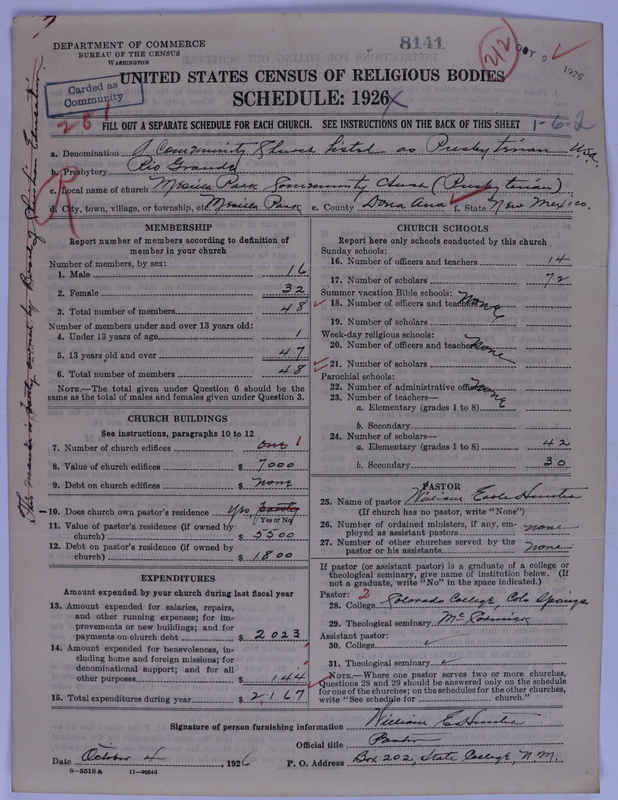 DEPARTMENT OF COMMERCE
BUREAU OF THE CENSUS
WASHINGTON
8141
212
OCT 9 1926
UNITED STATES CENSUS OF RELIGIOUS BODIES
SCHEDULE: 1926
Carded as
Community
281
FILL OUT A SEPARATE SCHEDULE FOR EACH CHURCH. SEE INSTRUCTIONS ON THE BACK OF THIS SHEET
1-6-2
a. Denomination A Community Church listed as Presbyterian U.S.A.
b. Presbytery Rio Grande
c. Local name of church Mesilla Park Community Church (Presbyterian)
d. City, town, village, or township, etc. Mesilla Park e. County Dona Ana f. State New Mexico.
This manse is partly owned by Board of Christian Education
MEMBERSHIP
Report number of members according to definition of
member in your church
Number of members, by sex:
1. Male 16
2. Female 32
3. Total number of members 48
Number of members under and over 13 years old:
4. Under 13 years of age 1
5. 13 years old and over 47
6. Total number of members 48
NOTE.—The total given under Question 6 should be the
same as the total of males and females given under Question 3.
CHURCH BUILDINGS
See instructions, paragraphs 10 to 12
7. Number of church edifices one 1
8. Value of church edifices $ 7000
9. Debt on church edifices $ none
10. Does church own pastor's residence? Yes, partly
Yes or No
11. Value of pastor's residence (if owned by
church) $ 5500
12. Debt on pastor's residence (if owned by
church) $ 1800
EXPENDITURES
Amount expended by your church during last fiscal year
13. Amount expended for salaries, repairs,
and other running expenses; for im-
provements or new buildings; and for
payments on church debt $ 2023
14. Amount expended for benevolences, in-
cluding home and foreign missions; for
denominational support; and for all
other purposes $ 144
15. Total expenditures during year $ 2,167
CHURCH SCHOOLS
Report here only schools conducted by this church
Sunday schools:
16. Number of officers and teachers 14
17. Number of scholars 72
Summer vacation Bible schools:
18. Number of officers and teachers None
19. Number of scholars
Week-day religious schools:
20. Number of officers and teachers None
21. Number of scholars
Parochial schools:
22. Number of administrative officers None
23. Number of teachers—
a. Elementary (grades 1 to 8)
b. Secondary
24. Number of scholars—
a. Elementary (grades 1 to 8) 42
b. Secondary 30
PASTOR
25. Name of pastor William Earle
(If church has no pastor, write "None")
26. Number of ordained ministers, if any, em-
ployed as assistant pastors none
27. Number of other churches served by the
pastor or his assistants None
If pastor (or assistant pastor) is a graduate of a college or
theological seminary, give name of institution below. (If
not a graduate, write "No" in the space indicated.)
Pastor: 2
28. College Colorado College, Colo Springs
29. Theological seminary McCormick
Assistant pastor:
30. College
31. Theological seminary
NOTE.—Where one pastor serves two or more churches,
Questions 28 and 29 should be answered only on the schedule
for one of the churches; on the schedules for the other churches,
write "See schedule for church."
Signature of person furnishing information William E.
Official title Pastor
Date October 4, 1926 P. O. Address Box 202, State College, N. M.
8-5518 a